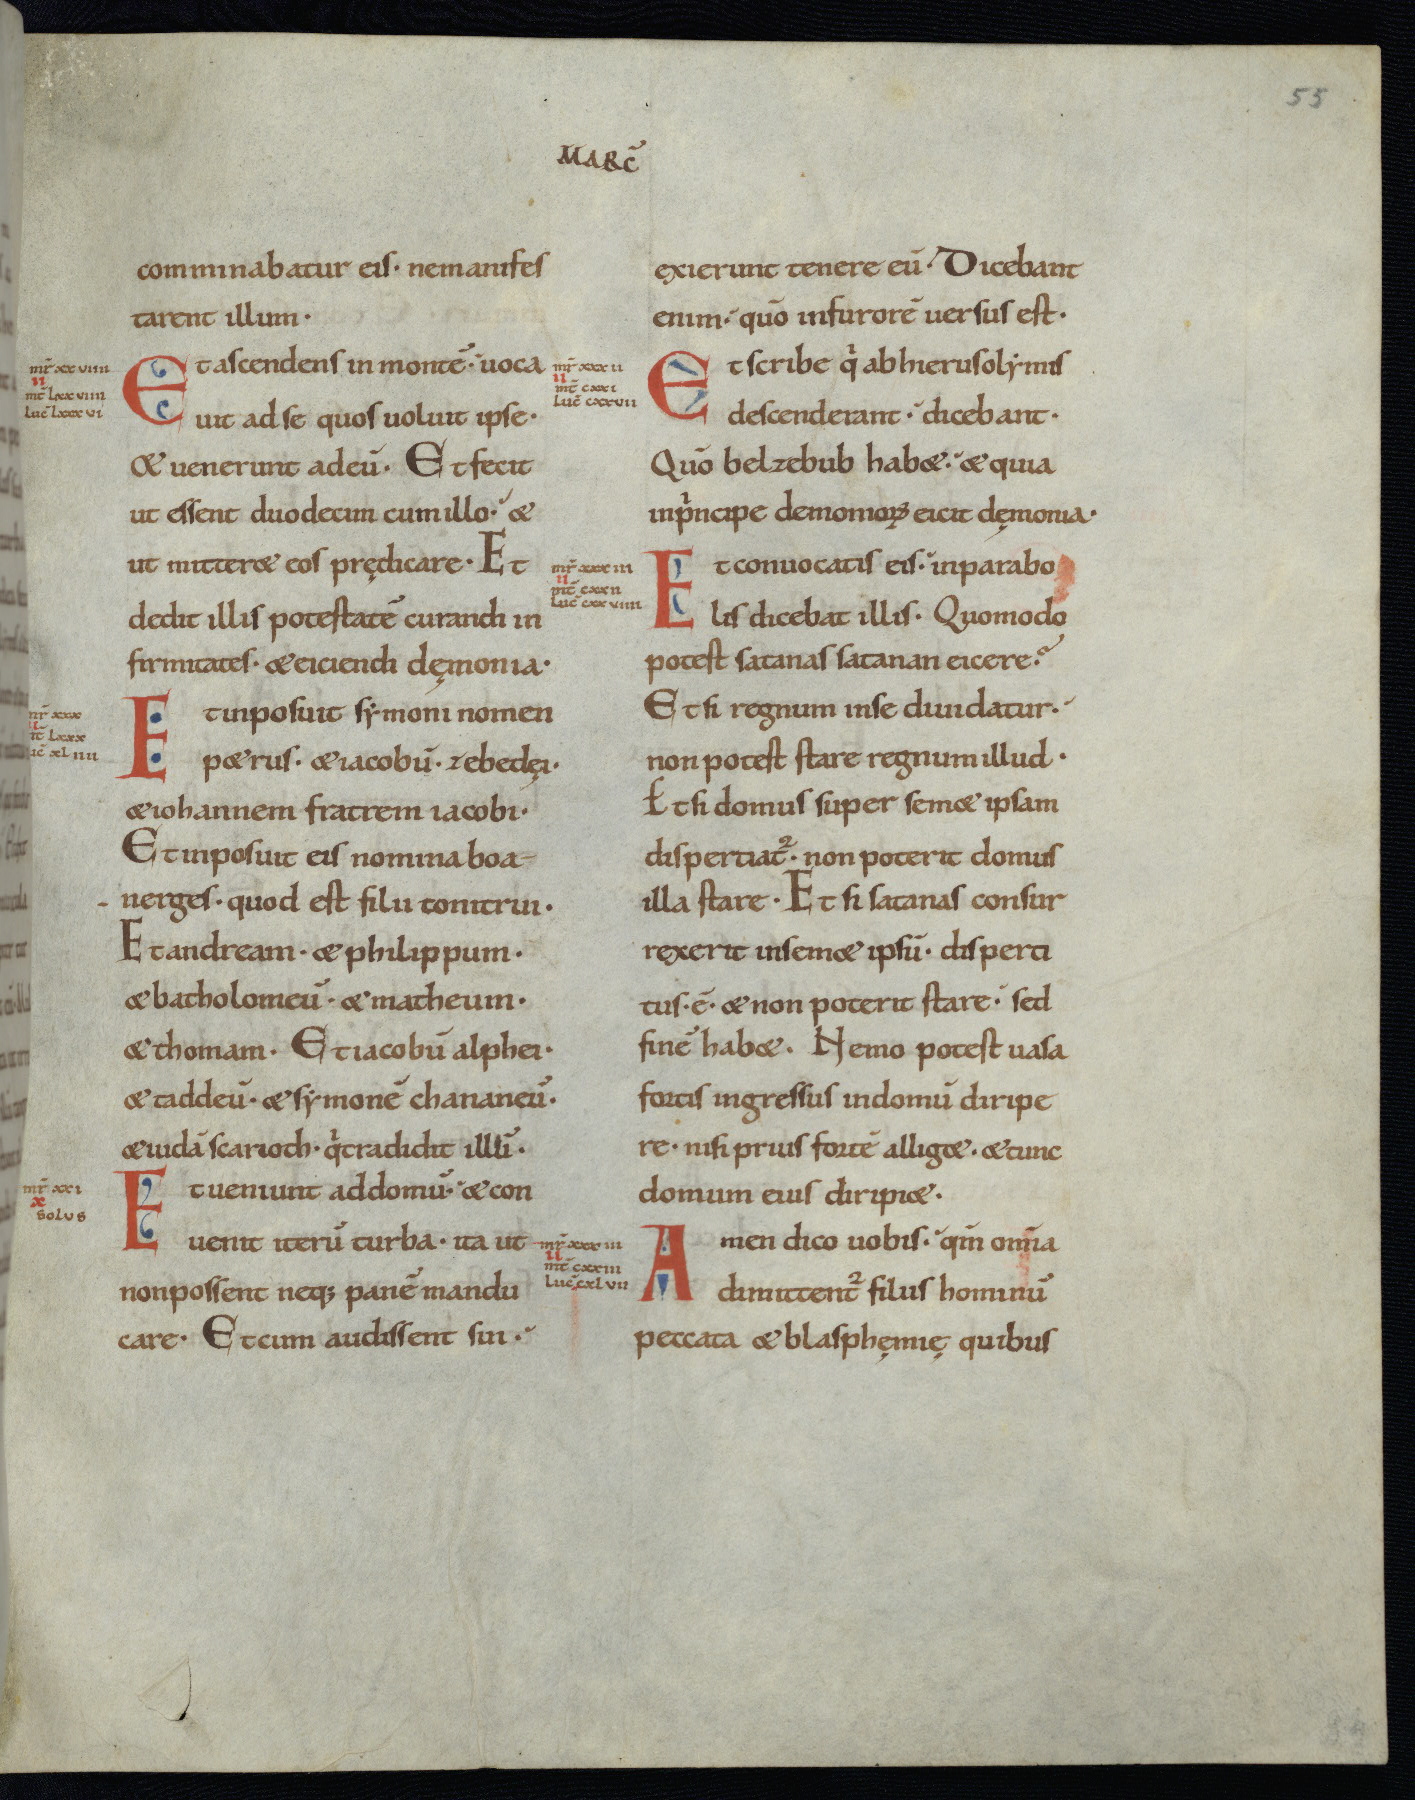 55
MARC̄
comminabatur eis· nemanifes
tarent illum·
mr̄ xxviiii
ii
mt̄ lxxviiii
luc̄ lxxxvi
Et ascendens in montē· uoca
uit ad se quos uoluit ipse·
& uenerunt ad eū· Et fecit
ut essent duodecim cum illo· &
ut mitter& eos prędicare· Et
dedit illis potestatē curandi in
firmitates· & eiciendi dęmonia·
mr̄ xxx
ii
mt̄ lxxx
luc̄ xliiii
Et inposuit symoni nomen
p&rus· & iacobū· zebedęi·
& iohannem fratrem iacobi·
Et inposuit eis nomina boa-
nerges· quod est filii tonitrui·
Et andream· & philippum·
& batholomeū· & matheum·
& thomam· Et iacobū alphei·
& taddeū· & symonē chananeū·
& iudā scarioth· q̍ tradidit illū·
mr̄ xxi
x
solus
Et ueniunt ad domū· & con
uenit iterū turba· ita ut
non possent neq; panē mandu
care· Et cum audissent sui·
exierunt tenere eū· Dicebant
enim· quō in furorē uersus est·
mr̄ xxxii
ii
mt̄ cxxi
luc̄ cxxvii
Et scribe q̍ ab hierusolymis
descenderant· dicebant·
Quō belzebub hab&· & quia
in p̍ncipe demonioꝝ eicit dęmonia·
mr̄ xxxiii
ii
mt̄ cxxii
luc̄ cxxviiii
Et conuocatis eis· in parabo
lis dicebat illis· Quomodo
potest satanas satanan eicere?
Et si regnum in se diuidatur·
non potest stare regnum illud·
Et si domus super sem& ipsam
dispertiat᷑· non poterit domus
illa stare· Et si satanas consur
rexerit in sem& ipsū· disperti
tus·ē· & non poterit stare· sed
finē hab&· Nemo potest uasa
fortis ingressus in domū diripe
re· nisi prius fortē allig&· & tunc
domum eius diripi&·
mr̄ xxxiii
ii
mt̄ cxxiii
luc̄ cxlvii
Amen dico uobis· qm̄ omn̄ia
dimittent᷑ filiis hominū
peccata & blasphęmię quibus